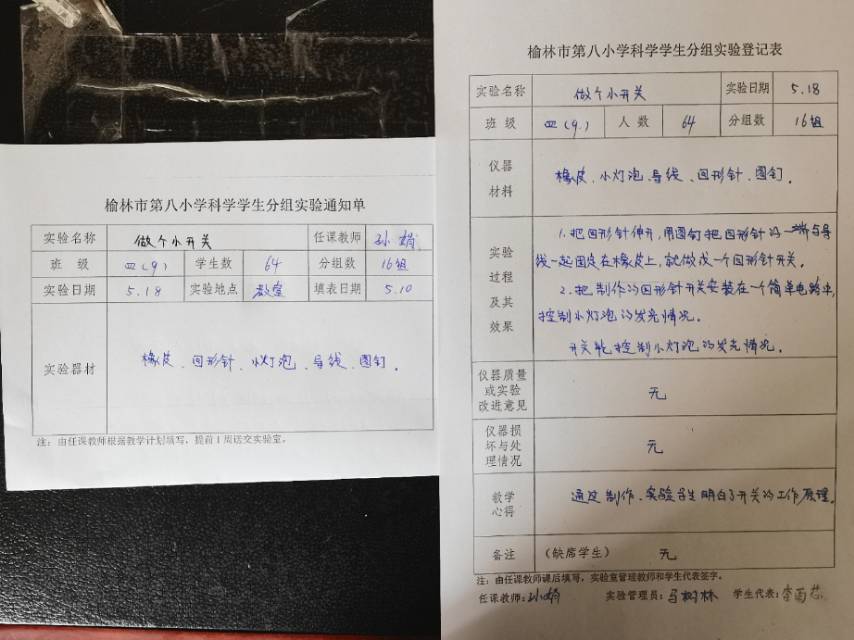 榆林市第八小学科学学生分组实验通知单
实验名称 做个小开关 任课教师 孙娟
班级 四(9) 学生数 64 分组数 16组
实验日期 5.18 实验地点 教室 填表日期 5.10
实验器材 橡皮、回形针、小灯泡、导线、图钉。
注：由任课教师根据教学计划填写，提前1周送交实验室。
榆林市第八小学科学学生分组实验登记表
实验名称 做个小开关 实验日期 5.18
班级 四(9.) 人数 64 分组数 16组
仪器
材料
橡皮、小灯泡、导线、回形针、图钉。
实验
过程
及其
效果
1.把回形针伸开，用图钉把回形针的一端与导
线一起固定在橡皮上，就做成一个回形针开关。
2.把制作的回形针开关安装在一个简单电路中，
控制小灯泡的发光情况。
开关能控制小灯泡的发光情况。
仪器质量
或实验
改进意见
无
仪器损
坏与处
理情况
无
教学
心得
通过制作、实验学生明白了开关的工作原理。
备注 (缺席学生) 无
注：由任课教师课后填写，实验室管理教师和学生代表签字。
任课教师：孙娟 实验管理员：马树林 学生代表：